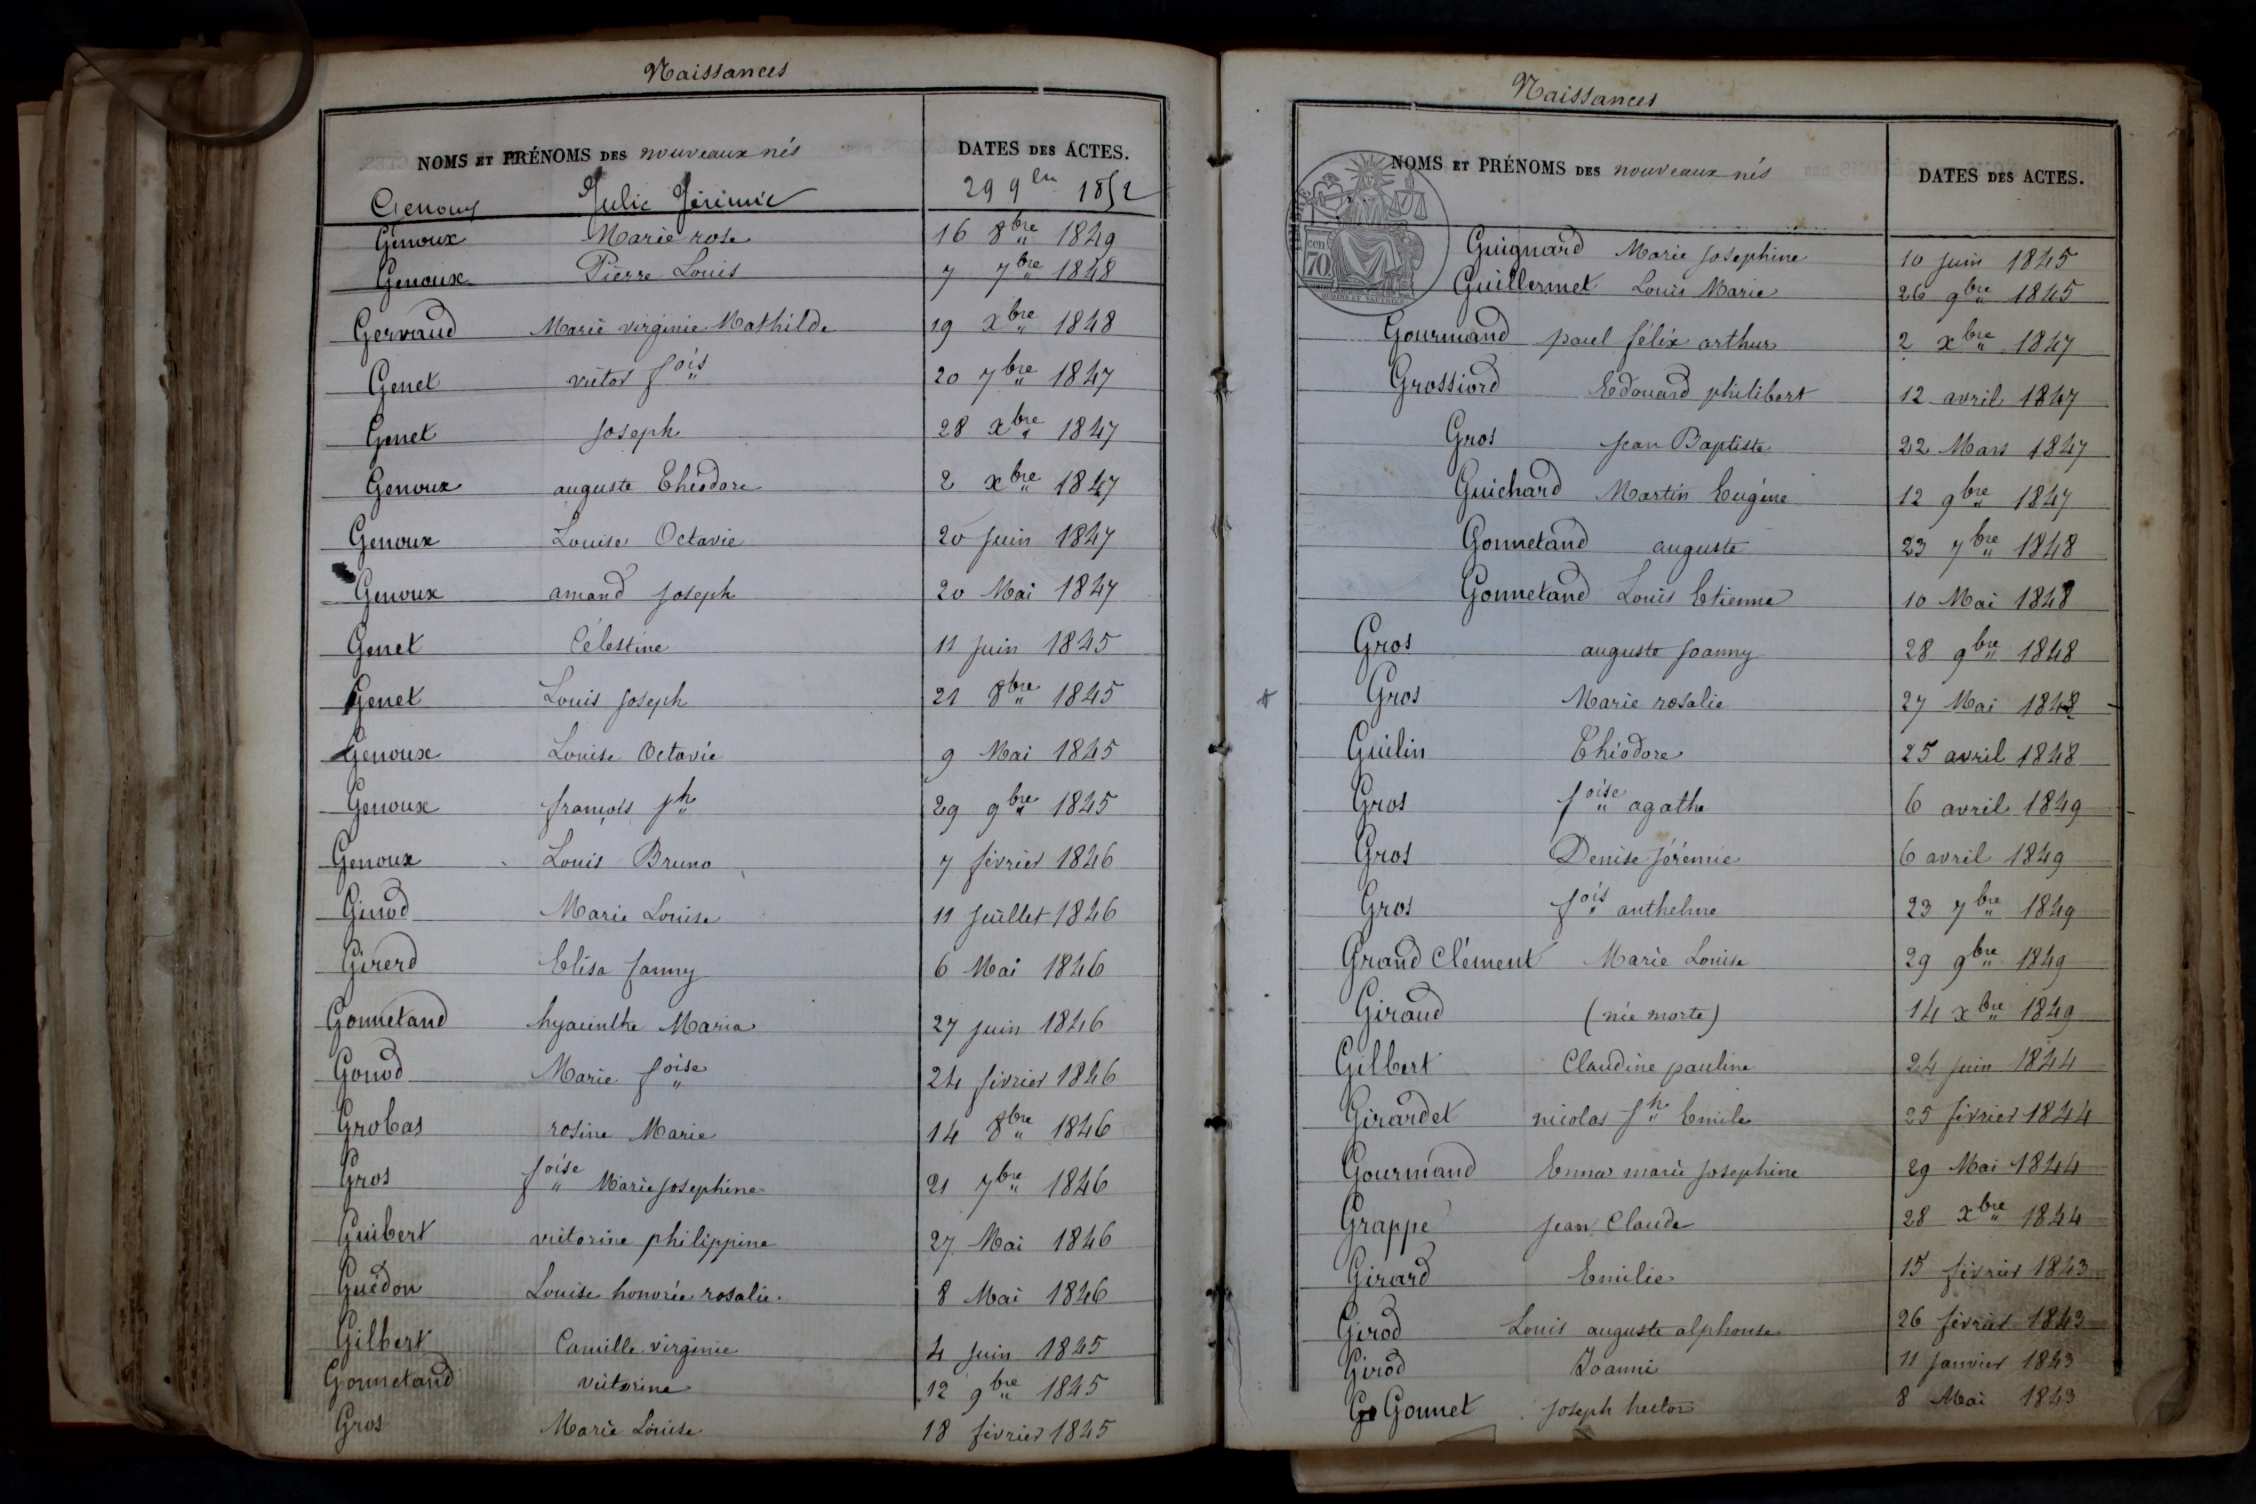 Naissances
NOMS ET PRÉNOMS DES nouveaux nés DATES DES ACTES.
Genoux Julie Jérémie 29 9bre 1852
Genoux Marie rose 16 8bre 1849
Genoux Pierre Louis 7 7bre 1848
Gervaud Marie virginie Mathilde 19 xbre 1848
Genet victor fois 20 7bre 1847
Genet Joseph 28 xbre 1847
Genoux auguste Théodore 2 xbre 1847
Genoux Louise Octavie 20 Juin 1847
Genoux amand Joseph 20 Mai 1847
Genet Célestine 11 Juin 1845
Genet Louis Joseph 21 8bre 1845
Genoux Louise Octavie 9 Mai 1845
Genoux françois jh 29 9bre 1845
Genoux Louis Bruno 7 février 1846
Ginod Marie Louise 11 Juillet 1846
Girerd Elisa fanny 6 Mai 1846
Gonnetand hyacinthe Maria 27 juin 1846
Gonod Marie foise 24 février 1846
Grobas rosine Marie 14 8bre 1846
Gros foise Marie Josephine 21 7bre 1846
Guibert victorine philippine 27 Mai 1846
Guédon Louise honorée rosalie. 8 Mai 1846
Gilbert Camille virginie 4 Juin 1845
Gonnetand victorine 12 9bre 1845
Gros Marie Louise 18 février 1845
Naissances
NOMS ET PRÉNOMS DES nouveaux nés DATES DES ACTES.
70 cen
Guignard Marie Josephine 10 Juin 1845
Guillermet Louis Marie 26 9bre 1845
Gourmand paul félix arthur 2 xbre 1847
Grossiord Edouard philibert 12 avril 1847
Gros Jean Baptiste 22 Mars 1847
Guichard Martin Eugène 12 9bre 1847
Gonnetand auguste 23 7bre 1848
Gonnetand Louis Etienne 10 Mai 1848
Gros auguste Joanny 28 9bre 1848
Gros Marie rosalie 27 Mai 1848
Guilin Théodore 25 avril 1848
Gros foise agathe 6 avril 1849
Gros Denise Jérémie 6 avril 1849
Gros fois anthelme 23 7bre 1849
Grand Clément Marie Louise 29 9bre 1849
Giraud (née morte) 14 xbre 1849
Gilbert Claudine pauline 24 juin 1844
Girardet nicolas jh Emile 25 février 1844
Gourmand Emma marie Josephine 29 Mai 1844
Grappe Jean Claude 28 xbre 1844
Girard Emilie 15 février 1843
Girod Louis auguste alphonse 26 février 1843
Girod Joanni 11 Janvier 1843
Gonnet Joseph hector 8 Mai 1843